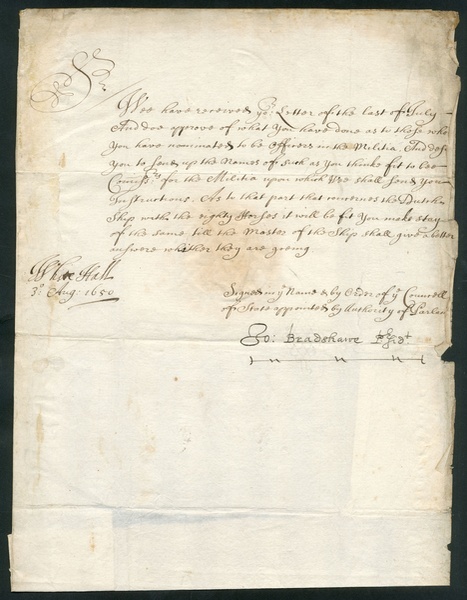 Sr.
Wee have received yor: Letter of the last of July
And doe approve of what you have done as to those who
you have nominated to be Officers in the Militia. And desire
you to send up the Names of such as you thinke fit to bee
Commissrs for the Militia upon which Wee shall send you
Instructions. As to that part that concernes the Dutch
Ship with the eighty Horses it will be fit you make stay
of the same till the Master of the Ship shall give a better
answere whether they are going
White Hall
3º Aug: 1650
Signed in ye Name & by Order of ye Councell
of State appointed by Authority of Parliamt
Jo: Bradshawe Presidt